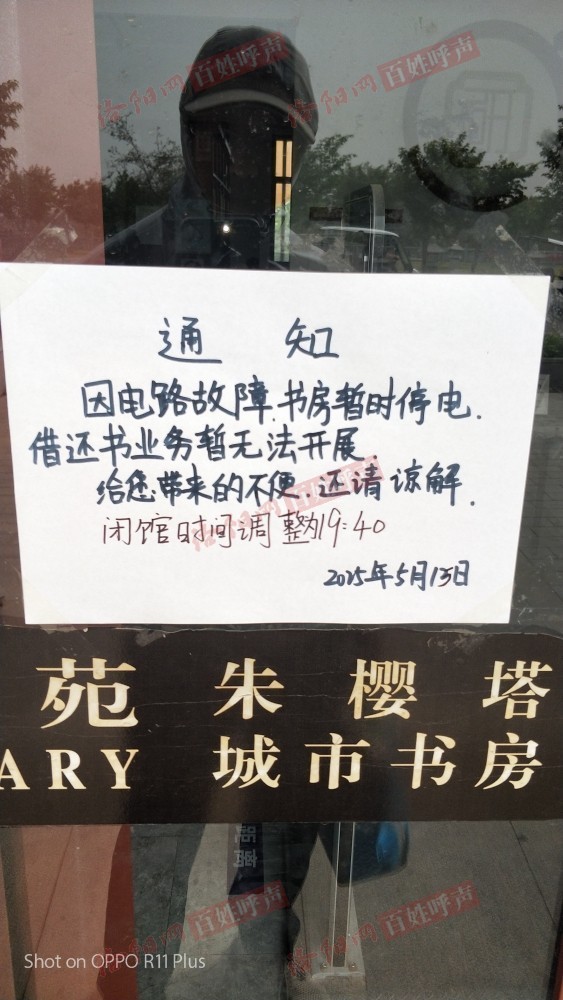 洛阳网 百姓呼声
洛阳网 百姓呼声
通 知
因电路故障.书房暂时停电.
借还书业务暂无法开展.
给您带来的不便.还请谅解.
洛阳网 百姓呼声
闭馆时间调整为19:40
2025年5月15日
苑 朱樱塔
ARY 城市书房
距离
洛阳网 百姓呼声
洛阳网 百姓呼声
Shot on OPPO R11 Plus